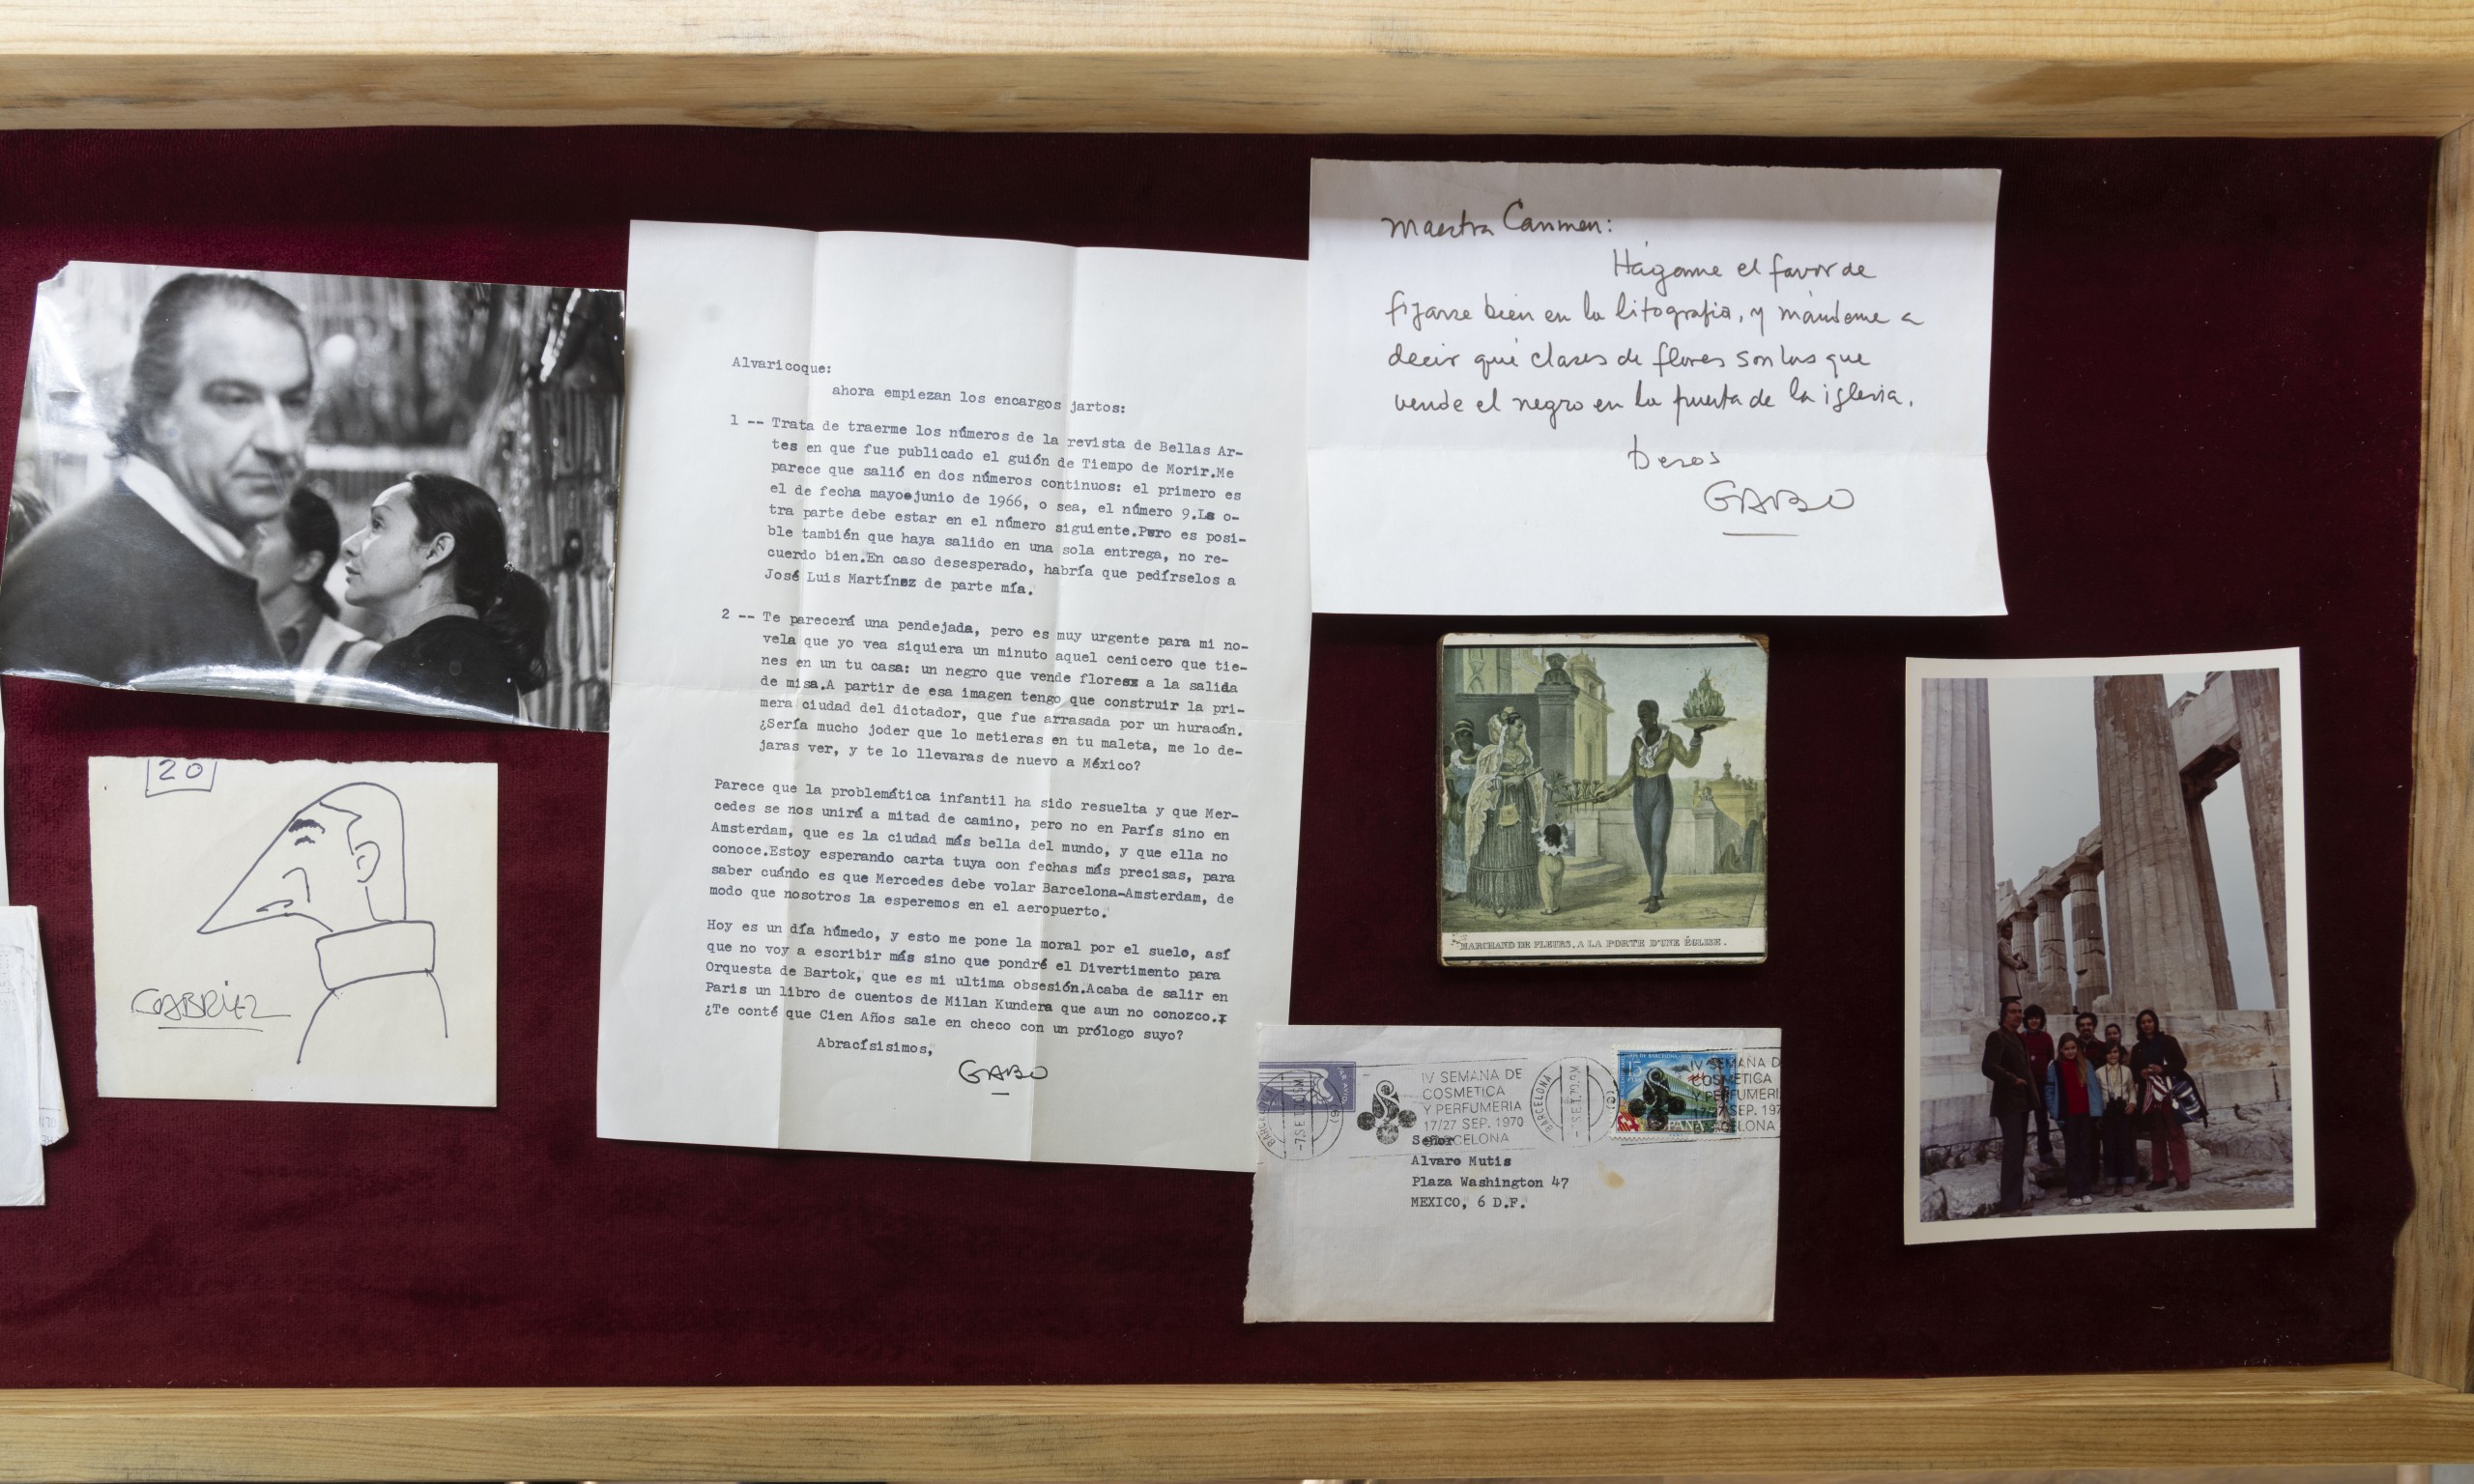 20
GABRIEL
Alvaricoque:
ahora empiezan los encargos jartos:
1 -- Trata de traerme los números de la revista de Bellas Ar-
tes en que fue publicado el guión de Tiempo de Morir.Me
parece que salió en dos números continuos: el primero es
el de fecha mayo-junio de 1966, o sea, el número 9.La o-
tra parte debe estar en el número siguiente.Pero es posi-
ble también que haya salido en una sola entrega, no re-
cuerdo bien.En caso desesperado, habría que pedírselos a
José Luis Martínez de parte mía.
2 -- Te parecerá una pendejada, pero es muy urgente para mi no-
vela que yo vea siquiera un minuto aquel cenicero que tie-
nes en un tu casa: un negro que vende flores a la salida
de misa.A partir de esa imagen tengo que construir la pri-
mera ciudad del dictador, que fue arrasada por un huracán.
¿Sería mucho joder que lo metieras en tu maleta, me lo de-
jaras ver, y te lo llevaras de nuevo a México?
Parece que la problemática infantil ha sido resuelta y que Mer-
cedes se nos unirá a mitad de camino, pero no en París sino en
Amsterdam, que es la ciudad más bella del mundo, y que ella no
conoce.Estoy esperando carta tuya con fechas más precisas, para
saber cuándo es que Mercedes debe volar Barcelona-Amsterdam, de
modo que nosotros la esperemos en el aeropuerto.
Hoy es un día húmedo, y esto me pone la moral por el suelo, así
que no voy a escribir más sino que pondré el Divertimento para
Orquesta de Bartok, que es mi ultima obsesión.Acaba de salir en
Paris un libro de cuentos de Milan Kundera que aun no conozco.
¿Te conté que Cien Años sale en checo con un prólogo suyo?
Abracísisimos,
GABO
Maestra Carmen:
Hágame el favor de
fijarse bien en la litografia, y mándeme a
decir qué clases de flores son las que
vende el negro en la puerta de la iglesia.
Besos
GABO
MARCHAND DE FLEURS, A LA PORTE D'UNE ÉGLISE.
BARCELONA
IV SEMANA DE
COSMETICA
Y PERFUMERIA
17/27 SEP. 1970
BARCELONA
BARCELONA
IV SEMANA D
COSMETICA
Y PERFUMERI
17/27 SEP. 197
BARCELONA
ESPAÑA
Señor
Alvaro Mutis
Plaza Washington 47
MEXICO, 6 D.F.